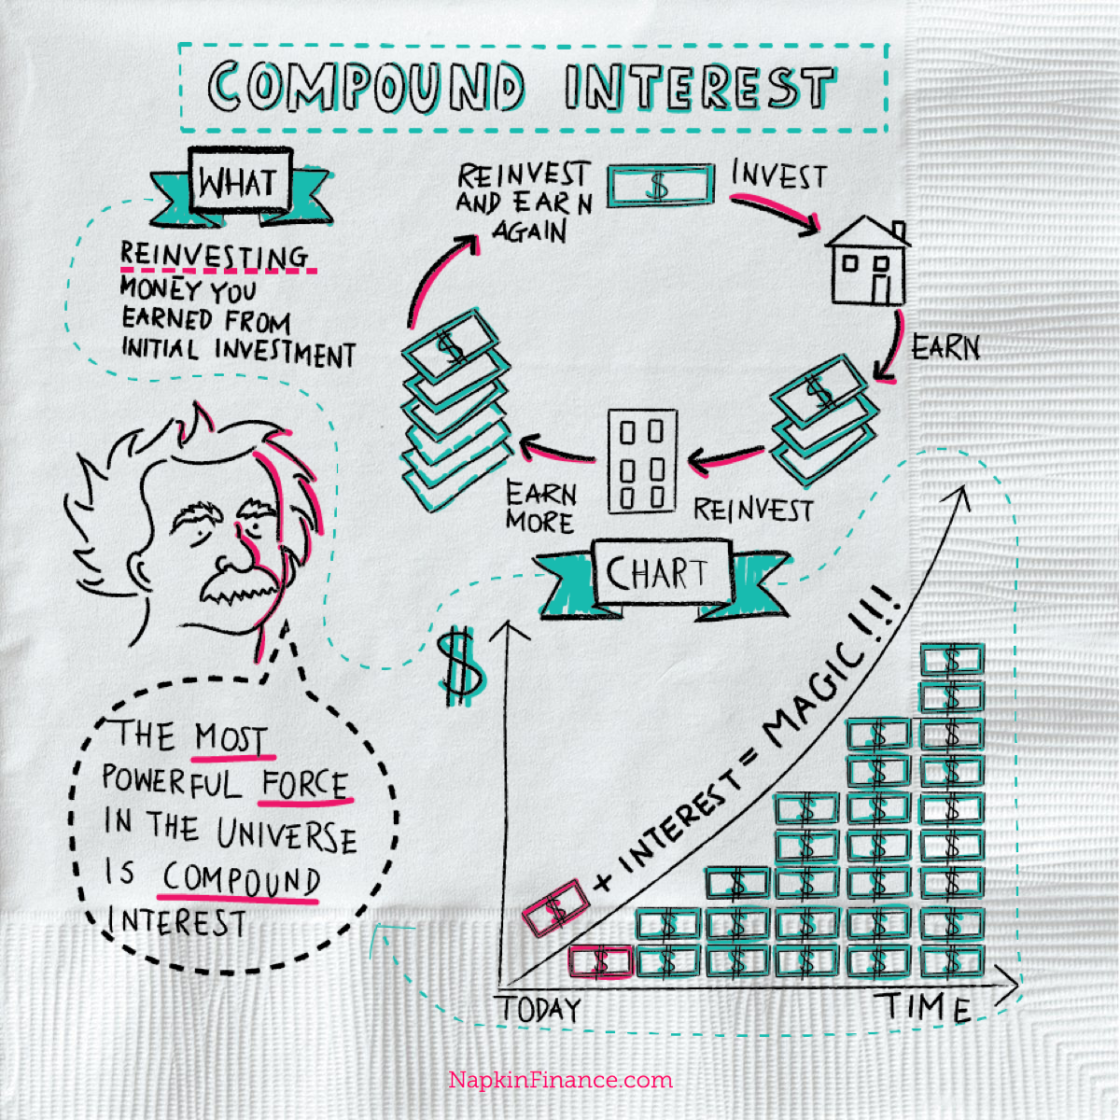 COMPOUND INTEREST
WHAT
REINVESTING
MONEY YOU
EARNED FROM
INITIAL INVESTMENT
REINVEST
AND EARN
AGAIN
$
INVEST
EARN
$
REINVEST
EARN
MORE
$
CHART
$
$ + INTEREST = MAGIC!!!
$
$
$ $
$ $
$ $ $
$ $ $
$ $ $ $
$ $ $ $ $
$ $ $ $ $ $
TODAY
TIME
THE MOST
POWERFUL FORCE
IN THE UNIVERSE
IS COMPOUND
INTEREST
NapkinFinance.com